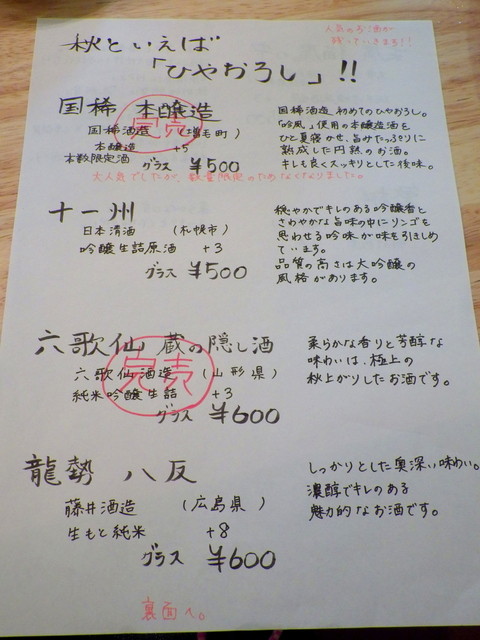 人気のお酒が
残っていきます!!
秋といえば
「ひやおろし」!!
国稀 本醸造
完売
国稀酒造 (増毛町)
本醸造 +5
本数限定酒 グラス ¥500
大人気でしたが、数量限定のためなくなりました。
国稀酒造 初めてのひやおろし。
「吟風」使用の本醸造酒を
ひと夏寝かせ、旨みたっぷりに
熟成した円熟のお酒。
キレも良くスッキリとした後味。
十一州
日本清酒 (札幌市)
吟醸生詰原酒 +3
グラス ¥500
穏やかでキレのある吟醸香と
さわやかな旨味の中にリンゴを
思わせる吟味が味を引きしめ
ています。
品質の高さは大吟醸の
風格があります。
六歌仙 蔵の隠し酒
完売
六歌仙酒造 (山形県)
純米吟醸生詰 +3
グラス ¥600
柔らかな香りと芳醇な
味わいは、極上の
秋上がりしたお酒です。
龍勢 八反
藤井酒造 (広島県)
生もと純米 +8
グラス ¥600
しっかりとした奥深い味わい。
濃醇でキレのある
魅力的なお酒です。
裏面へ。